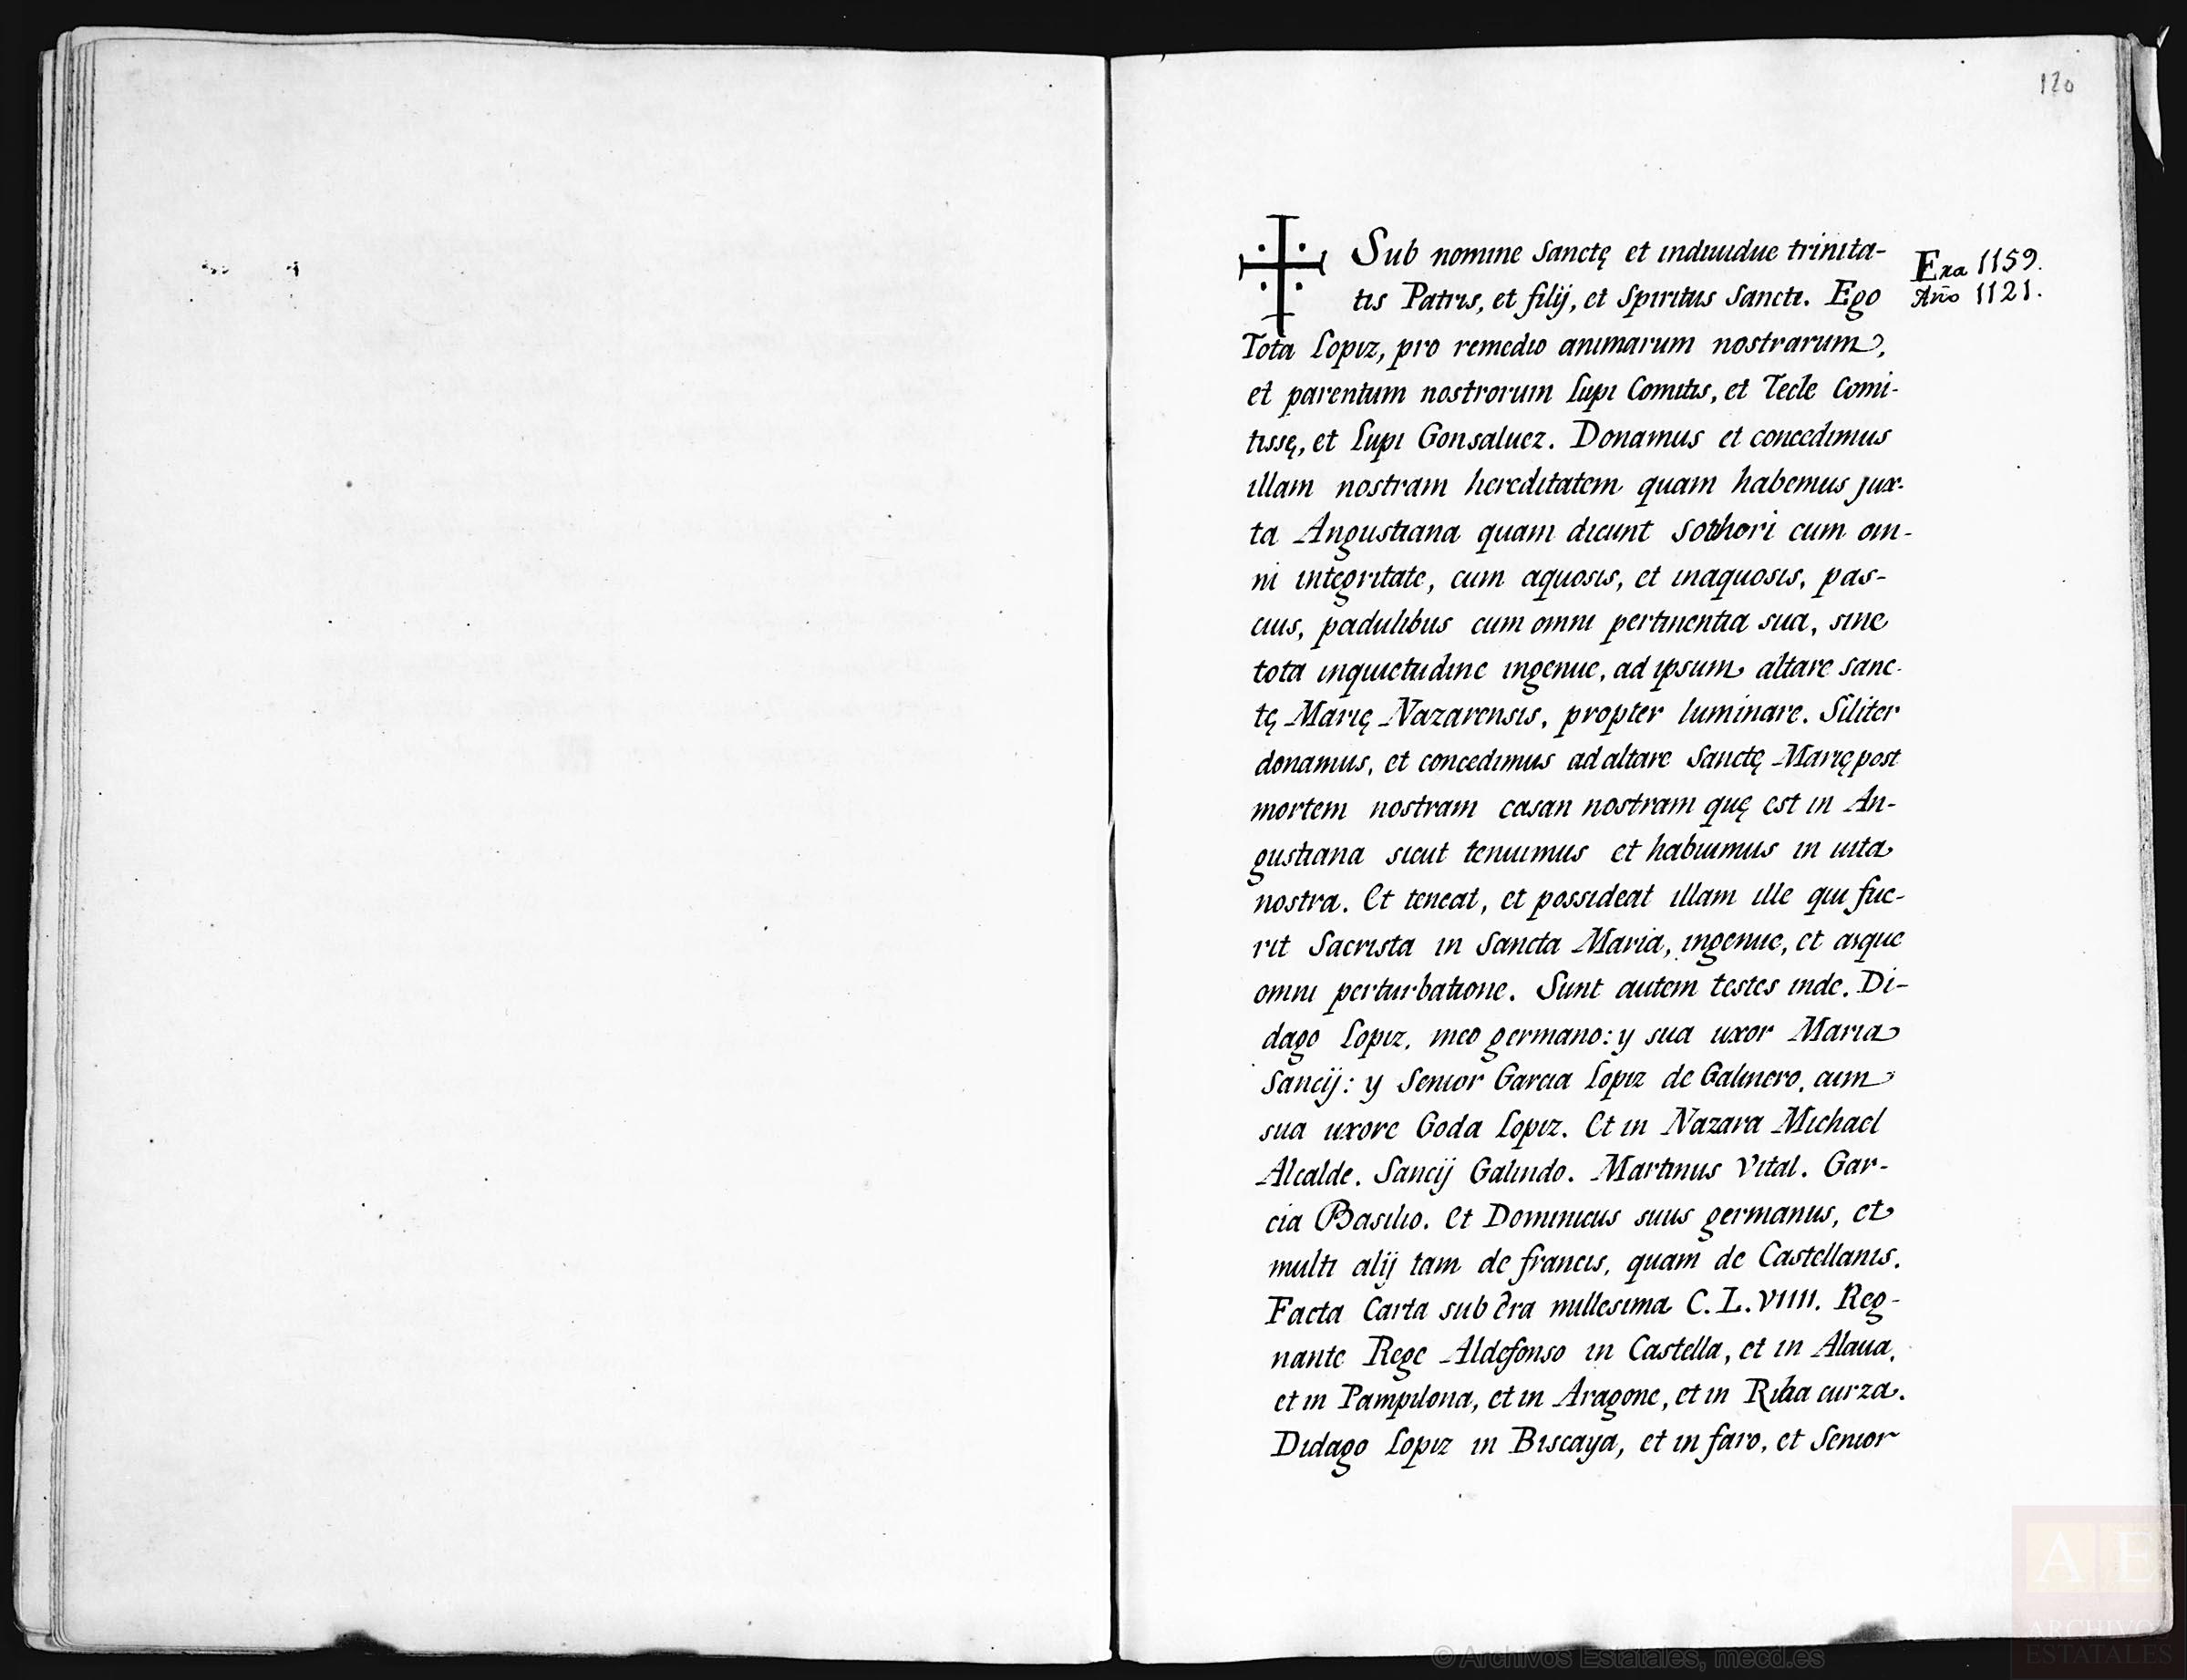 120
Sub nomine Sanctę et indiuidue trinita-
tis Patris, et filij, et Spiritus Sancti. Ego
Era 1159.
Año 1121.
Tota Lopiz, pro remedio animarum nostrarum,
et parentum nostrorum Lupi Comitis, et Tecle Comi-
tissę, et Lupi Gonsaluez. Donamus et concedimus
illam nostram hereditatem quam habemus jux-
ta Angustiana quam dicunt cum om-
ni integritate, cum aquosis, et inaquosis, pas-
cuis, padulibus cum omni pertinentia sua, sine
tota inquietudine ingenue, ad ipsum altare sanc-
tę Marię Nazarensis, propter luminare. Siliter
donamus, et concedimus ad altare Sanctę Marię post
mortem nostram casan nostram quę est in An-
gustiana sicut tenuimus et habuimus in uita
nostra. Et teneat, et possideat illam ille qui fue-
rit Sacrista in Sancta Maria, ingenue, et asque
omni perturbatione. Sunt autem testes inde. Di-
dago Lopiz, meo germano: y sua uxor Maria
Sancij: y Senior Garcia Lopiz de Galinero, cum
sua uxore Goda Lopiz. Et in Nazara Michael
Alcalde. Sancij Galindo. Martinus Vital. Gar-
cia Basilio. Et Dominicus suus germanus, et
multi alij tam de francis, quam de Castellanis.
Facta Carta sub era millesima C. L. VIIII. Reg-
nante Rege Aldefonso in Castella, et in Alaua,
et in Pampilona, et in Aragone, et in Riba curza.
Didago Lopiz in Biscaya, et in faro, et Senior
© Archivos Estatales, mecd.es
AE
ARCHIVOS
ESTATALES